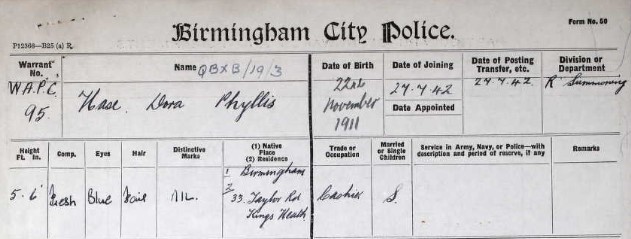 Form No. 50
Birmingham City Police.
P12368—B25 (a) R.
Warrant No.
Name
QBXB/19/3
Date of Birth
Date of Joining
Date of Posting Transfer, etc.
Division or Department
W.A.P.C. 95.
Hase. Dora Phyllis
22nd November 1911
27.7.42
Date Appointed
27.7.42.
"R" Summoning
Height Ft. In.
Comp.
Eyes
Hair
Distinctive Marks
(1) Native Place
(2) Residence
Trade or Occupation
Married or Single Children
Service in Army, Navy, or Police—with description and period of reserve, if any
Remarks
5. 6
Fresh
Blue
Fair
NIL.
1 Birmingham
2 33. Taylor Rd
Kings Heath
Cashier
S.